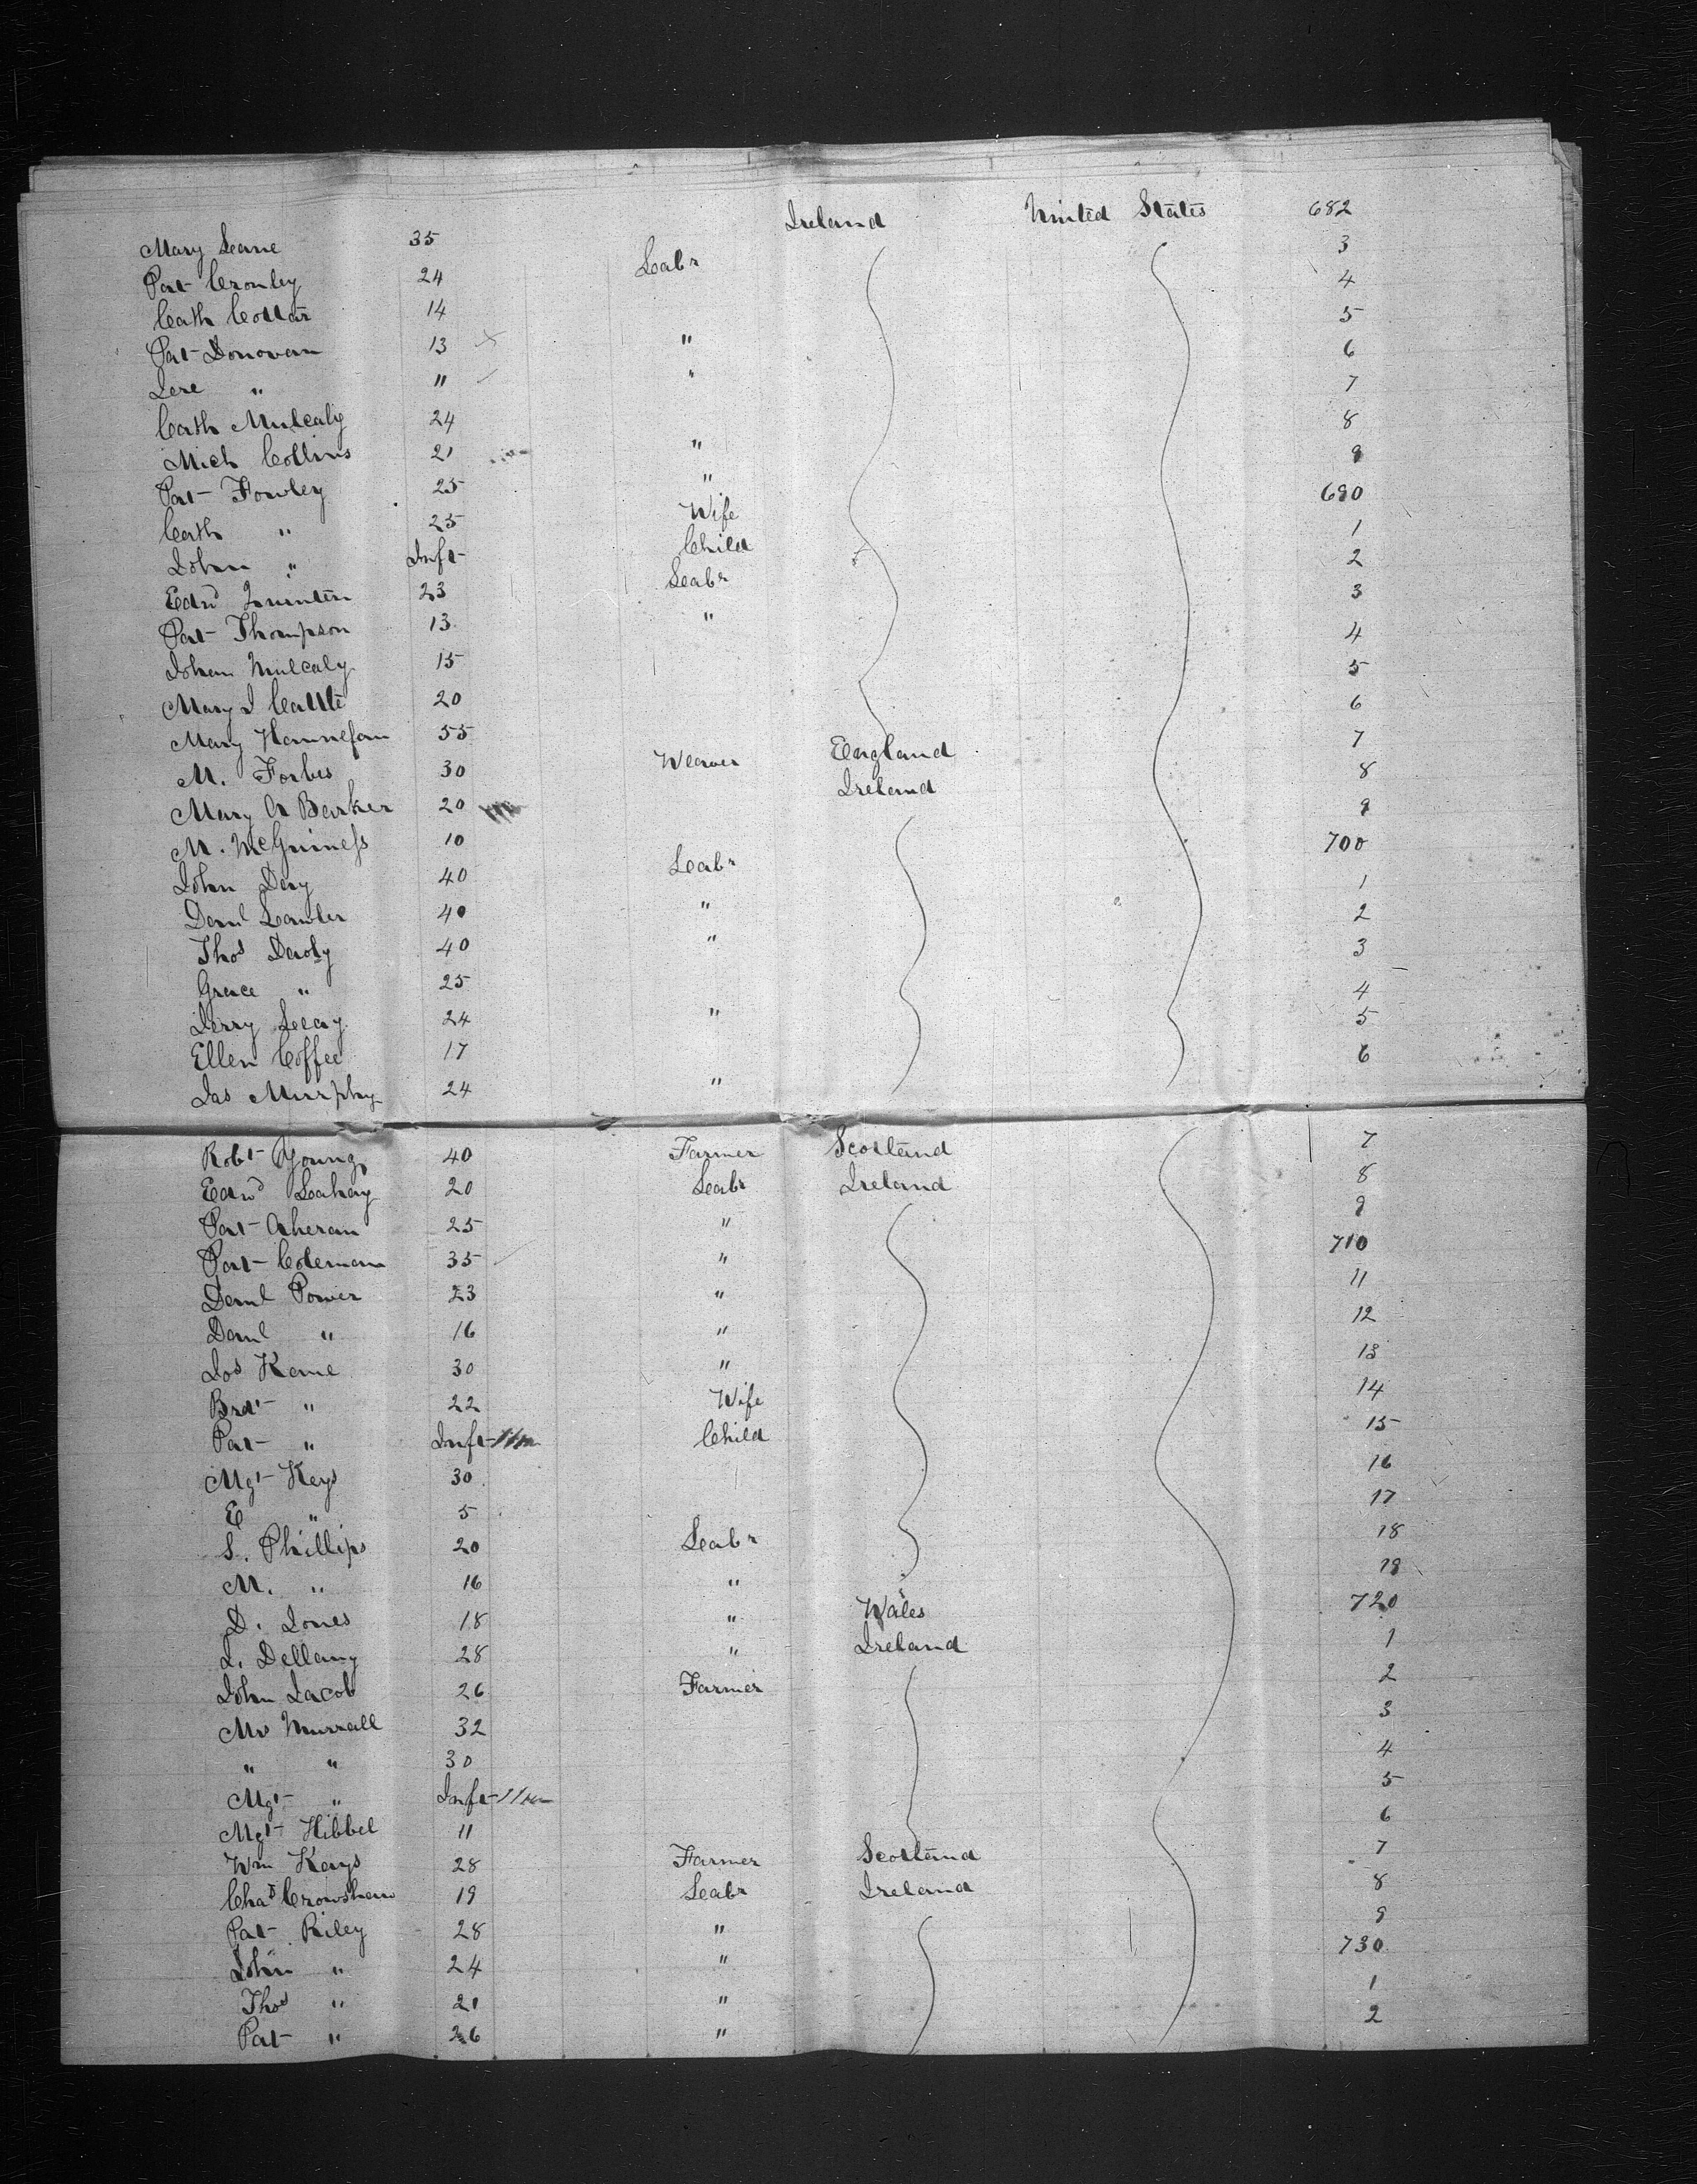 Mary Leane 35 Ireland United States 682
Pat Cronley 24 Labr 3
Cath Cottar 14 4
Pat Donovan 13 " 5
Jere " " " 6
Cath Mulcahy 24 7
Mich Collins 21 " 8
Pat Fowley 25 " 9
Cath " 25 Wife 690
Johan " Inft Child 1
Edwd Quinten 23 Labr 2
Pat Thompson 13 " 3
Johan Mulcaly 15 4
Mary J 20 5
Mary Hannefan 55 6
M. Forbes 30 Weaver England 7
Mary A Barker 20 Ireland 8
M. McGuiness 10 9
John Day 40 Labr 700
Danl Lawler 40 " 1
Thos Davoly 40 " 2
Grace " 25 3
Jerry Leary 24 " 4
Ellen Coffee 17 5
Jas Murphy 24 " 6
Robt Young 40 Farmer Scotland 7
Edwd Leahay 20 Labr Ireland 8
Pat Aheran 25 " 9
Pat Coleman 35 " 710
Danl Power 23 " 11
Danl " 16 " 12
Jos Kane 30 " 13
Brdt " 22 Wife 14
Pat " Inft 11m Child 15
Mgt Keys 30 16
E " 5 17
S. Phillips 20 Labr 18
M. " 16 " 19
D. Jones 18 " Wales 720
L. Dellany 28 " Ireland 1
John Jacob 26 Farmer 2
Mr Murrall 32 3
" " 30 4
Mgt " Inft 11m 5
Mgt Hibbel 11 6
Wm Kays 28 Farmer Scotland 7
Chas Crowshaw 19 Labr Ireland 8
Pat Riley 28 " 9
John " 24 " 730
Thos " 21 " 1
Pat " 26 " 2